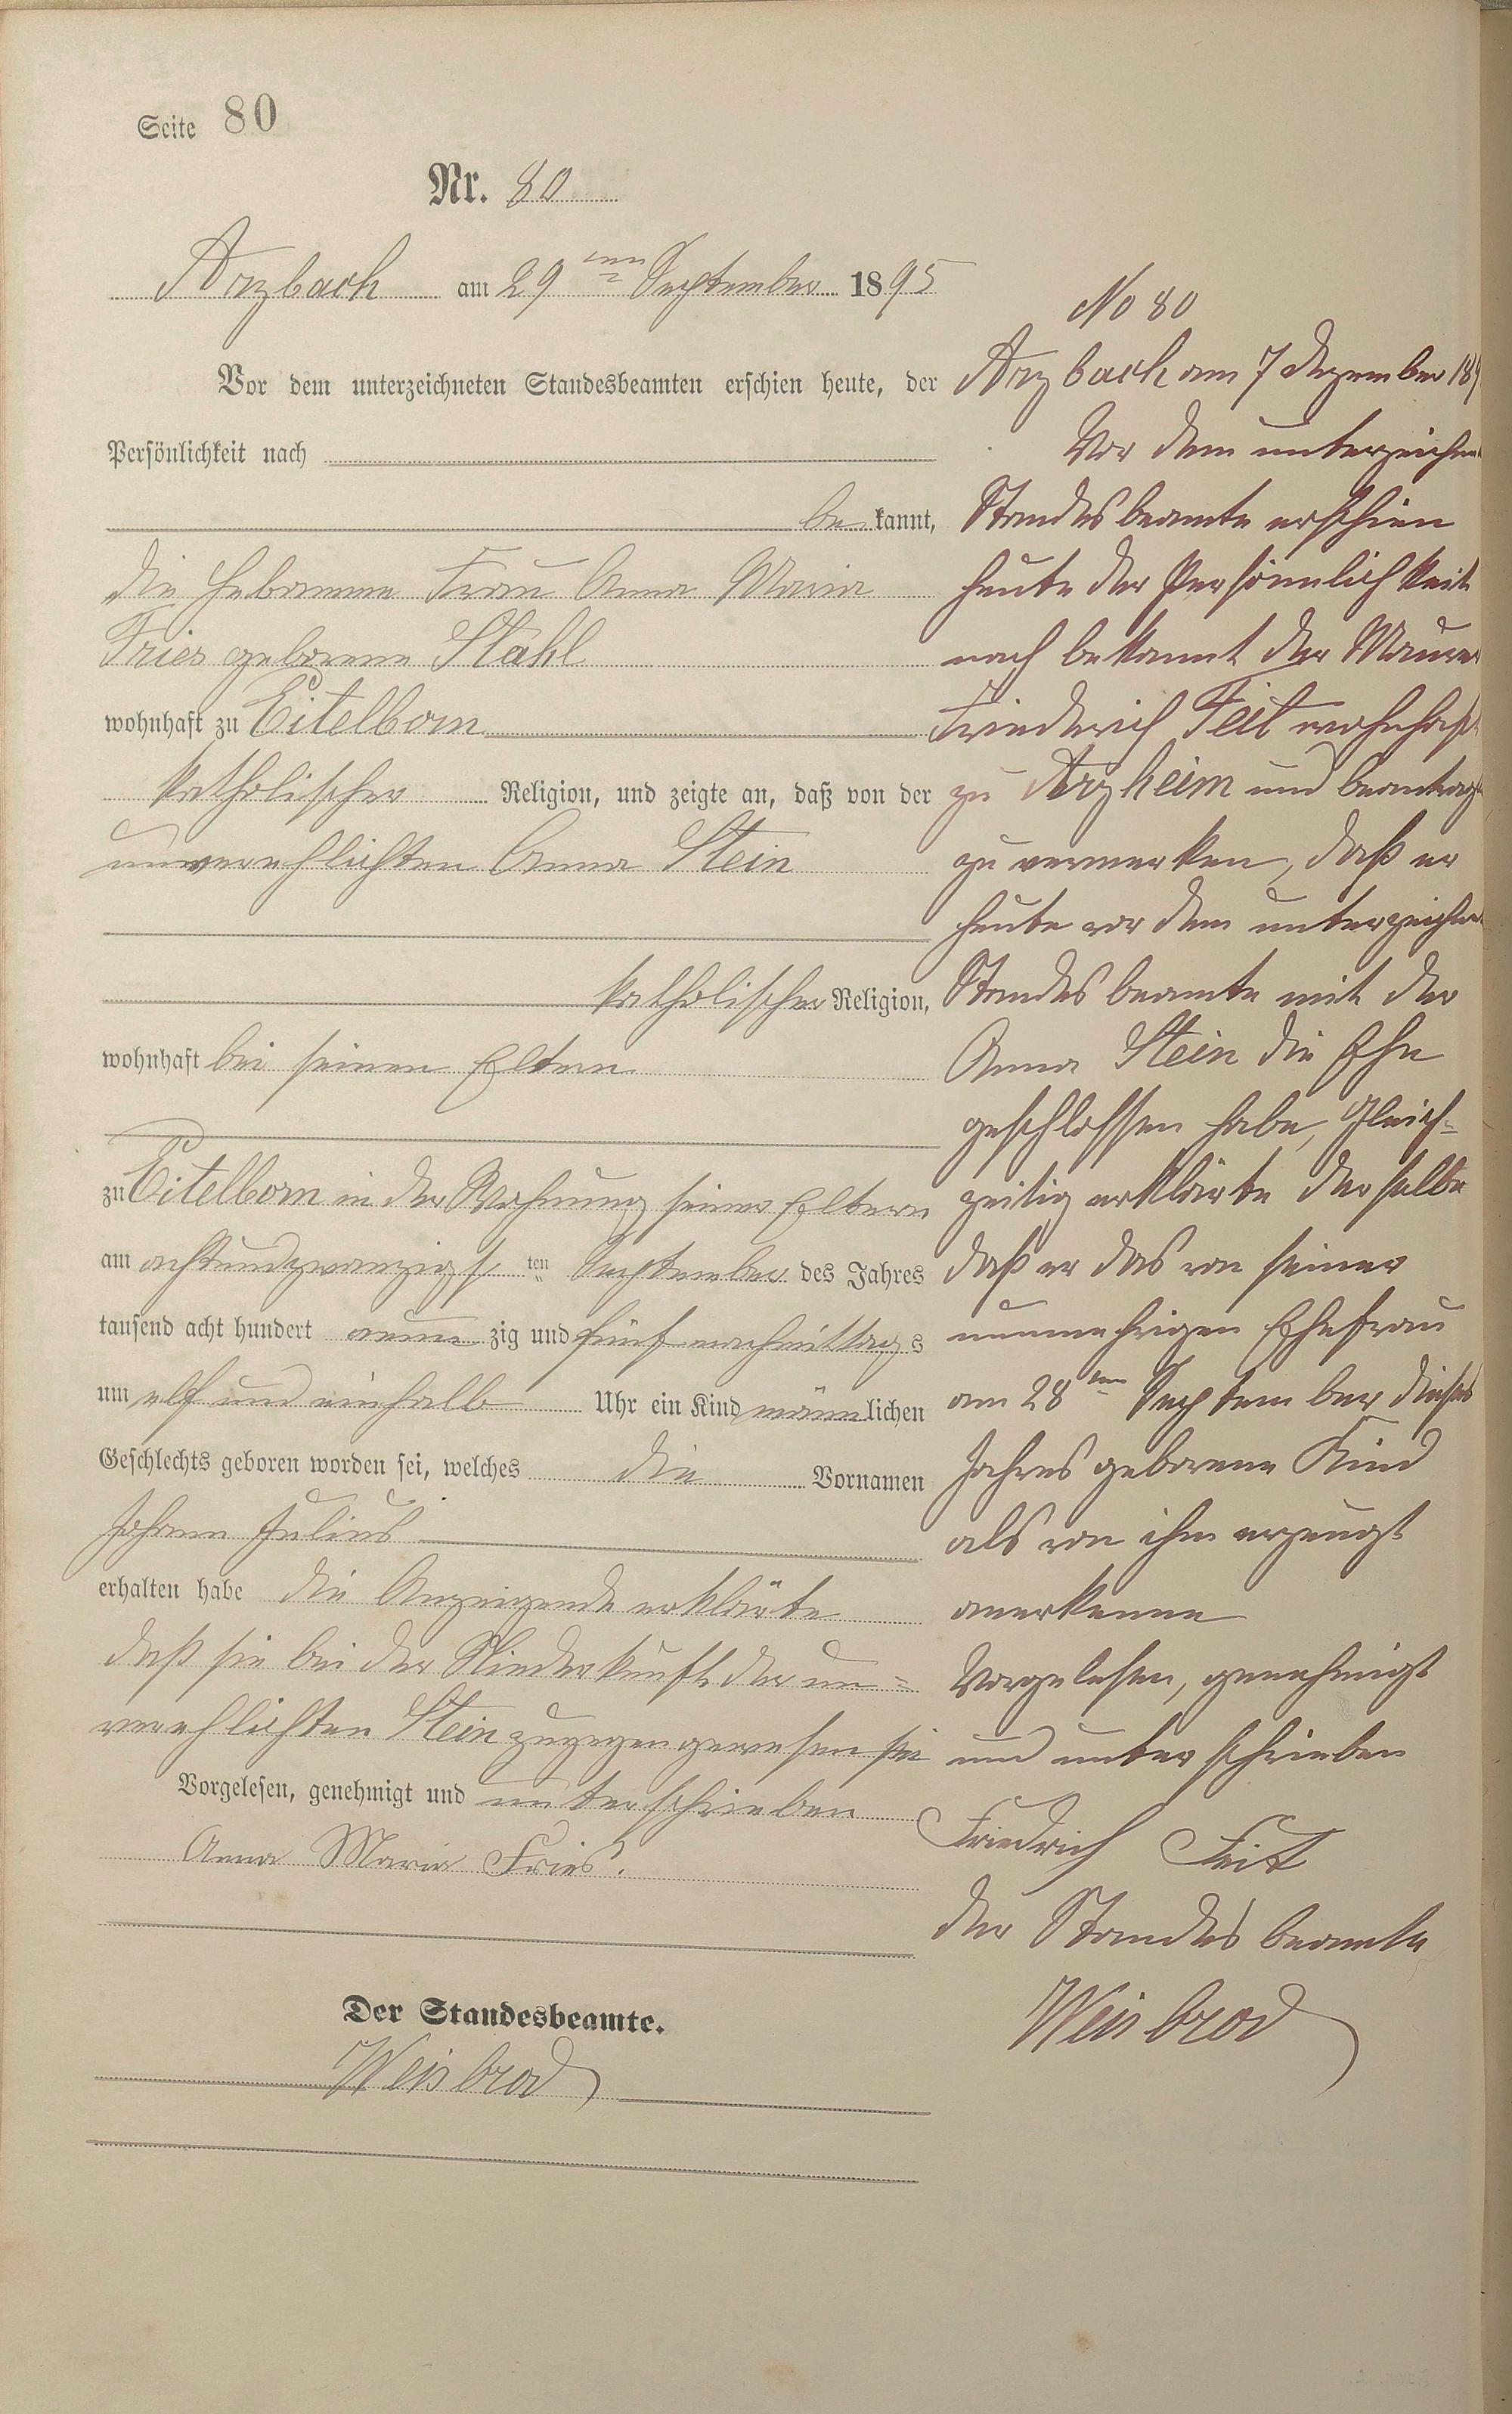 Seite 80
Nr. 80
Arzbach am 29ten September 1895
Vor dem unterzeichneten Standesbeamten erschien heute, der
Persönlichkeit nach
be kannt,
die Hebamme Frau Anna Maria
Fries geborene Stahl
wohnhaft zu Eitelborn
katholischer Religion, und zeigte an, daß von der
unverehlichten Anna Stein
katholischer Religion,
wohnhaft bei seinen Eltern
zu Eitelborn in der Wohnung seiner Eltern
am achtundzwanzigs ten September des Jahres
tausend acht hundert neun zig und fünf nachmittags
um elf und einhalb Uhr ein Kind männlichen
Geschlechts geboren worden sei, welches die Vornamen
Johann Julius
erhalten habe die Anzeigende erklärte
daß sie bei der Niederkunft der un=
verehlichten Stein zugegen gewesen sei
Vorgelesen, genehmigt und unterschrieben
Anna Maria Fries.
Der Standesbeamte.
Weisbrod
No 80
Arzbach am 7 Dezember 189
Vor dem unterzeichnet
Standesbeamte erschien
heute der Persönnlichkeit
nach bekannt der Maurer
Friederich Feit wohnhaft
zu Arzheim und beantragt
zu vermerken, daß er
heute vor dem unterzeichne
Standesbeamte mit der
Anna Stein die Ehe
geschlossen habe, Gleich=
zeitig erklärte derselbe
daß er das von seiner
nunmehrigen Ehefrau
am 28ten September dieses
Jahres geborene Kind
als von ihm erzeugt
anerkenne
Vorgelesen, genehmigt
und unterschrieben
Friedrich Feit
Der Standesbeamte
Weisbrod